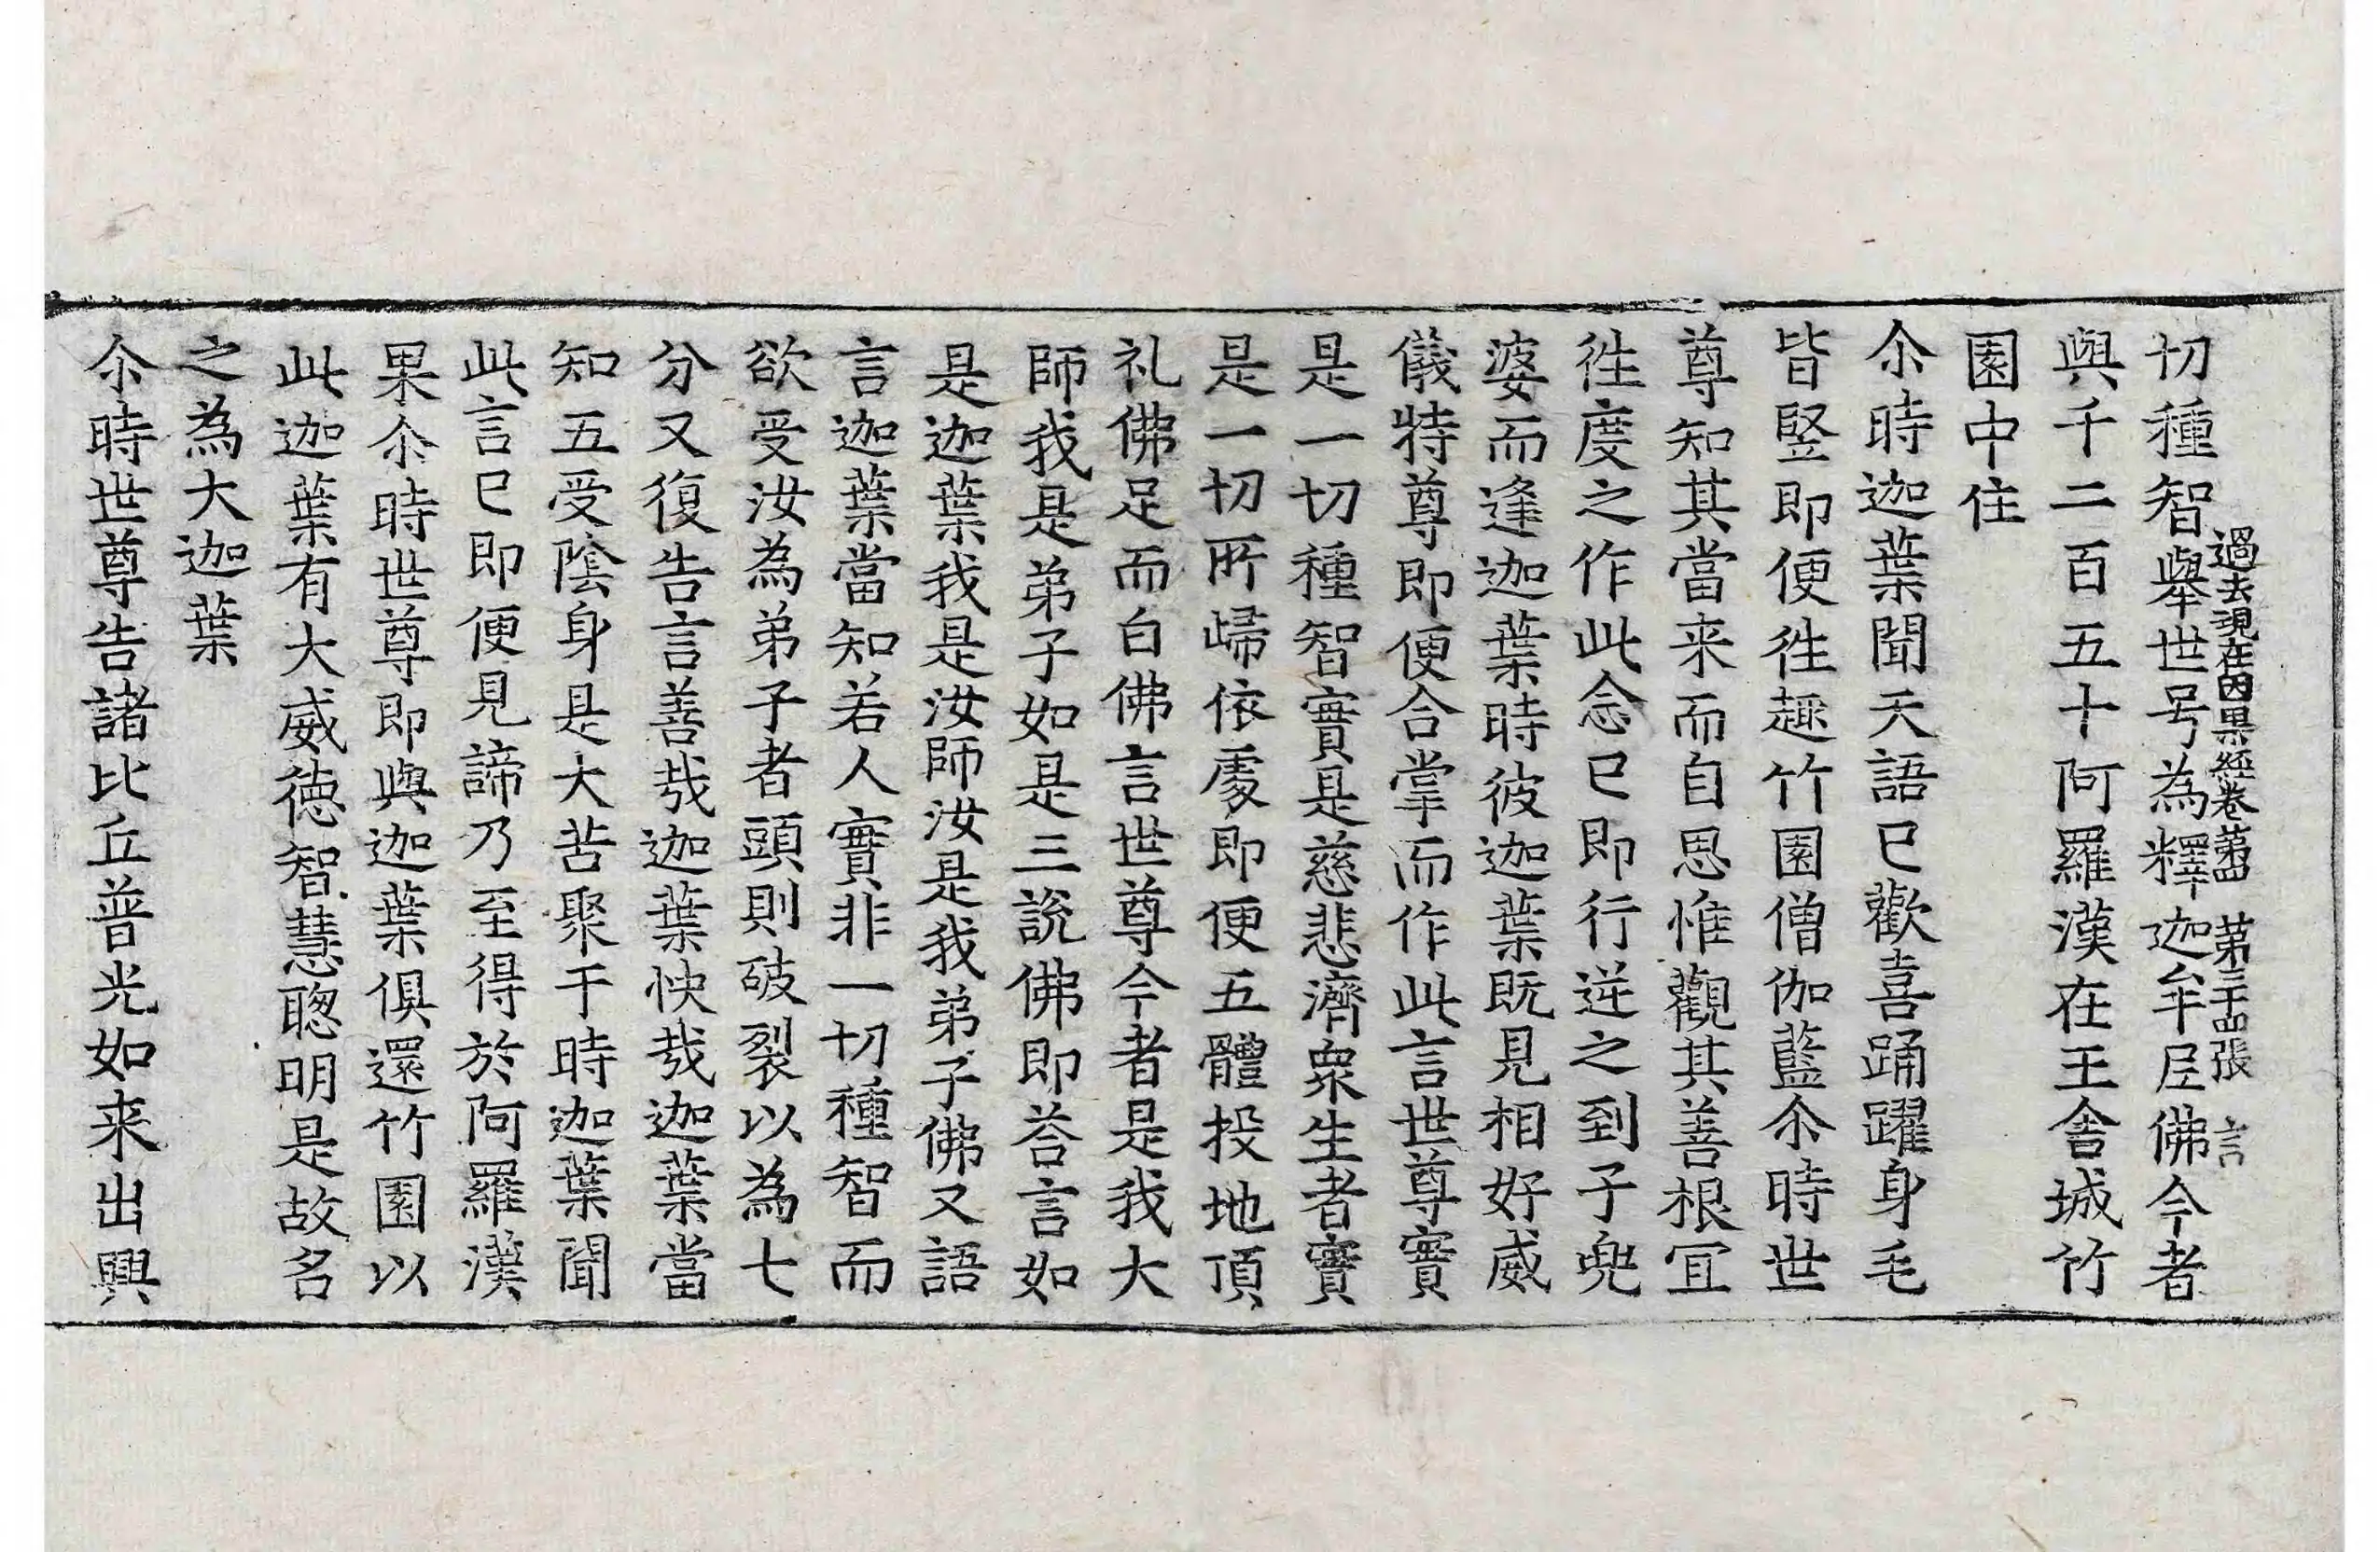 過去現在因果經卷第四 第三十四張 言
切種智舉世号為釋迦牟尼佛今者
與千二百五十阿羅漢在王舎城竹
園中住
尒時迦葉聞天語已歡喜踊躍身毛
皆竪即便徃趣竹園僧伽藍尒時世
尊知其當来而自思惟觀其善根冝
徃度之作此念已即行逆之到子兜
婆而逢迦葉時彼迦葉既見相好威
儀特尊即便合掌而作此言世尊實
是一切種智實是慈悲濟衆生者實
是一切所歸依處即便五體投地頂
礼佛足而白佛言世尊今者是我大
師我是弟子如是三說佛即荅言如
是迦葉我是汝師汝是我弟子佛又語
言迦葉當知若人實非一切種智而
欲受汝為弟子者頭則破裂以為七
分又復告言善哉迦葉快哉迦葉當
知五受陰身是大苦聚于時迦葉聞
此言已即便見諦乃至得於阿羅漢
果尒時世尊即與迦葉俱還竹園以
此迦葉有大威徳智慧聦明是故名
之為大迦葉
尒時世尊告諸比丘普光如来出興